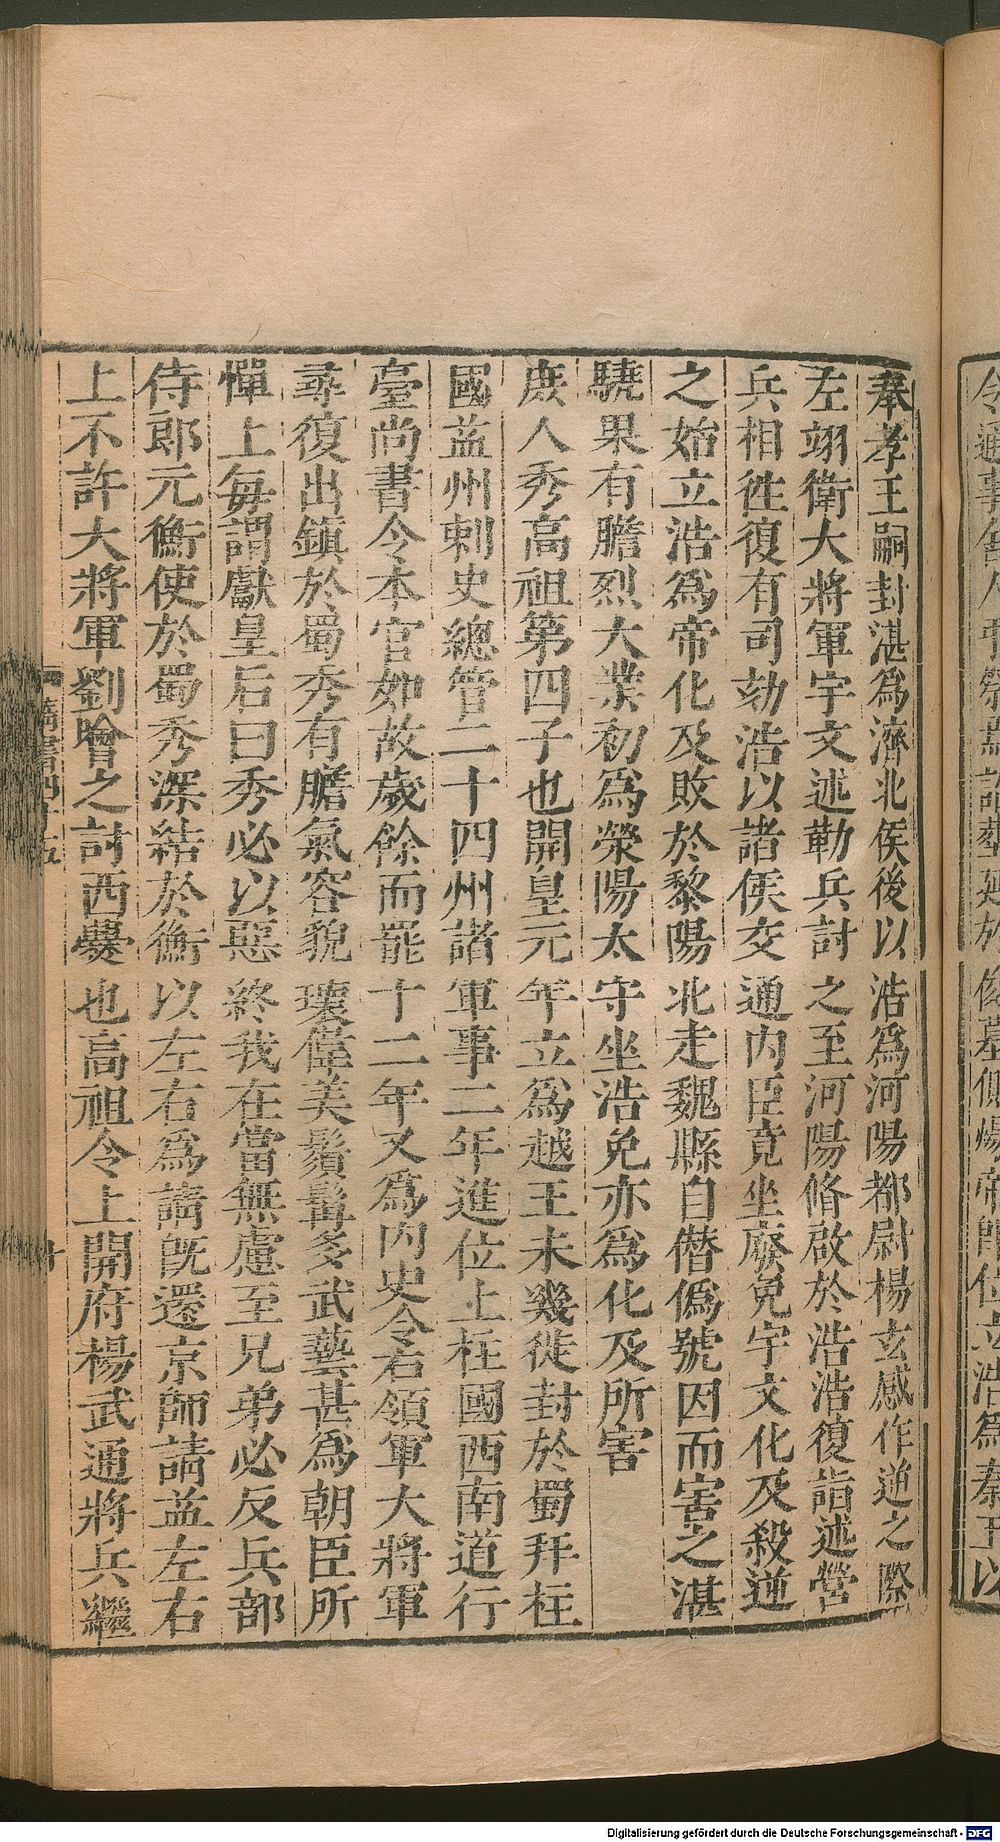 奉孝王嗣封湛為濟北侯後以浩為河陽都尉楊玄感作逆之際
左翊衛大將軍宇文述勒兵討之至河陽脩啟於浩浩復詣述營
兵相徃復有司劾浩以諸侯交通內臣竟坐廢免宇文化及殺逆
之始立浩為帝化及敗於黎陽北走魏縣自僭偽號因而害之湛
驍果有膽烈大業初為滎陽太守坐浩免亦為化及所害
庶人秀高祖第四子也開皇元年立為越王未幾徙封於蜀拜柱
國益州刺史總管二十四州諸軍事二年進位上柱國西南道行
臺尚書令本官如故歲餘而罷十二年又為內史令右領軍大將軍
尋復出鎮於蜀秀有膽氣容貌瓌偉美鬚髯多武藝甚為朝臣所
憚上每謂獻皇后曰秀必以惡終我在當無慮至兄弟必反兵部
侍郎元衡使於蜀秀深結於衡以左右為請既還京師請益左右
上不許大將軍劉噲之討西爨也高祖令上開府楊武通將兵繼
Digitalisierung gefördert durch die Deutsche Forschungsgemeinschaft - DFG